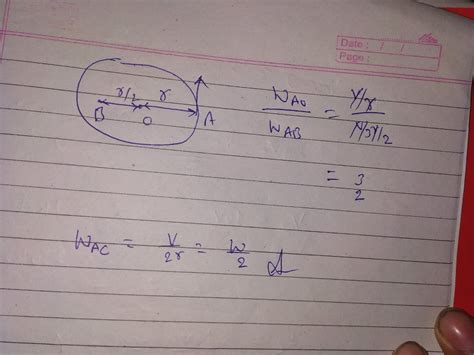 Date : / /
Page :
r/2 r
B O A
W_AO / W_AB = V/r / V/3r/2
= 3/2
W_AC = V/2r = W/2